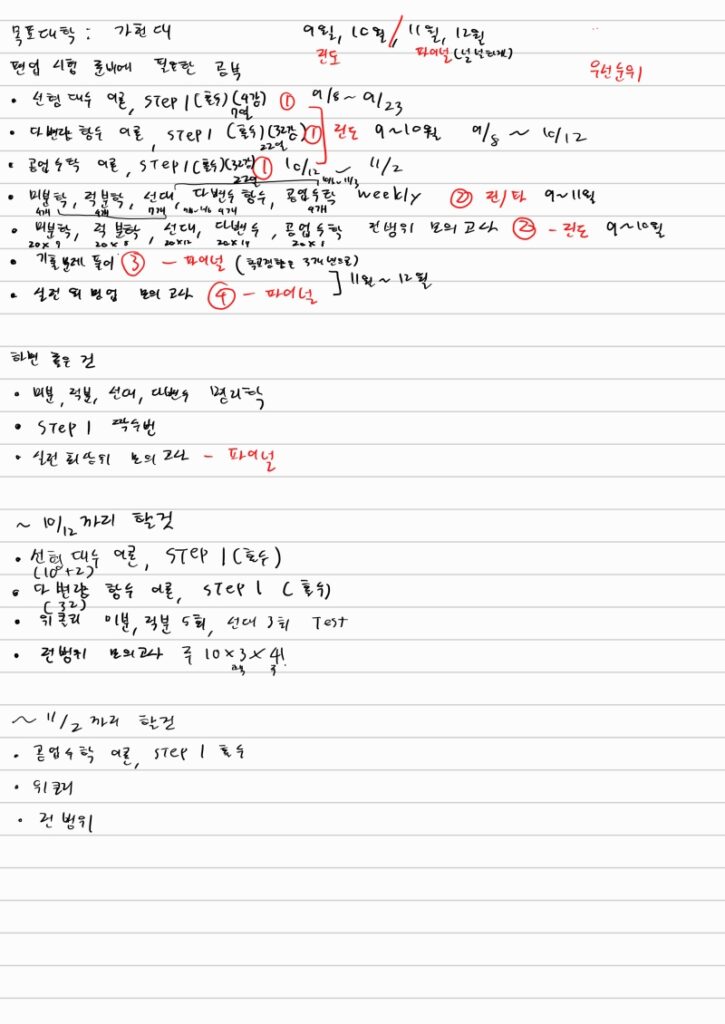 목표대학 : 가천대
9월, 10월 / 11월, 12월
진도 파이널 (널널하게)
편입 시험 준비에 필요한 공부
우선순위
• 선형대수 이론, STEP 1 (홀수) (9강) ① 9/8 ~ 9/23
7일
• 다변량 함수 이론, STEP 1 (홀수) (32강) ① 진도 9~10월 9/8 ~ 10/12
22일
• 공업수학 이론, STEP 1 (홀수) (32강) ① 10/12 ~ 11/2
22일
• 미분학, 적분학, 선대, 다변수함수, 공업수학 weekly ② 진/파 9~11월
4개 4개 7개 9개 9개
• 미분학, 적분학, 선대, 다변수, 공업수학 전범위 모의고사 ② - 진도 9~10월
20×9 20×8 20×12 20×14 20×8
• 기출문제 풀이 ③ - 파이널
• 실전 모의고사 ④ - 파이널
11월 ~ 12월
하면 좋은 건
• 미분, 적분, 선대, 다변수
• STEP 1 짝수번
• 실전 모의고사 - 파이널
~ 10/12 까지 할것
• 선형대수 이론, STEP 1 (홀수)
(10+2)
• 다변량 함수 이론, STEP 1 (홀수)
(32)
• 위클리 미분, 적분 5회, 선대 3회 Test
• 전범위 모의고사 주 10×3×4!
~ 11/2 까지 할건
• 공업수학 이론, STEP 1 홀수
• 위클리
• 전범위